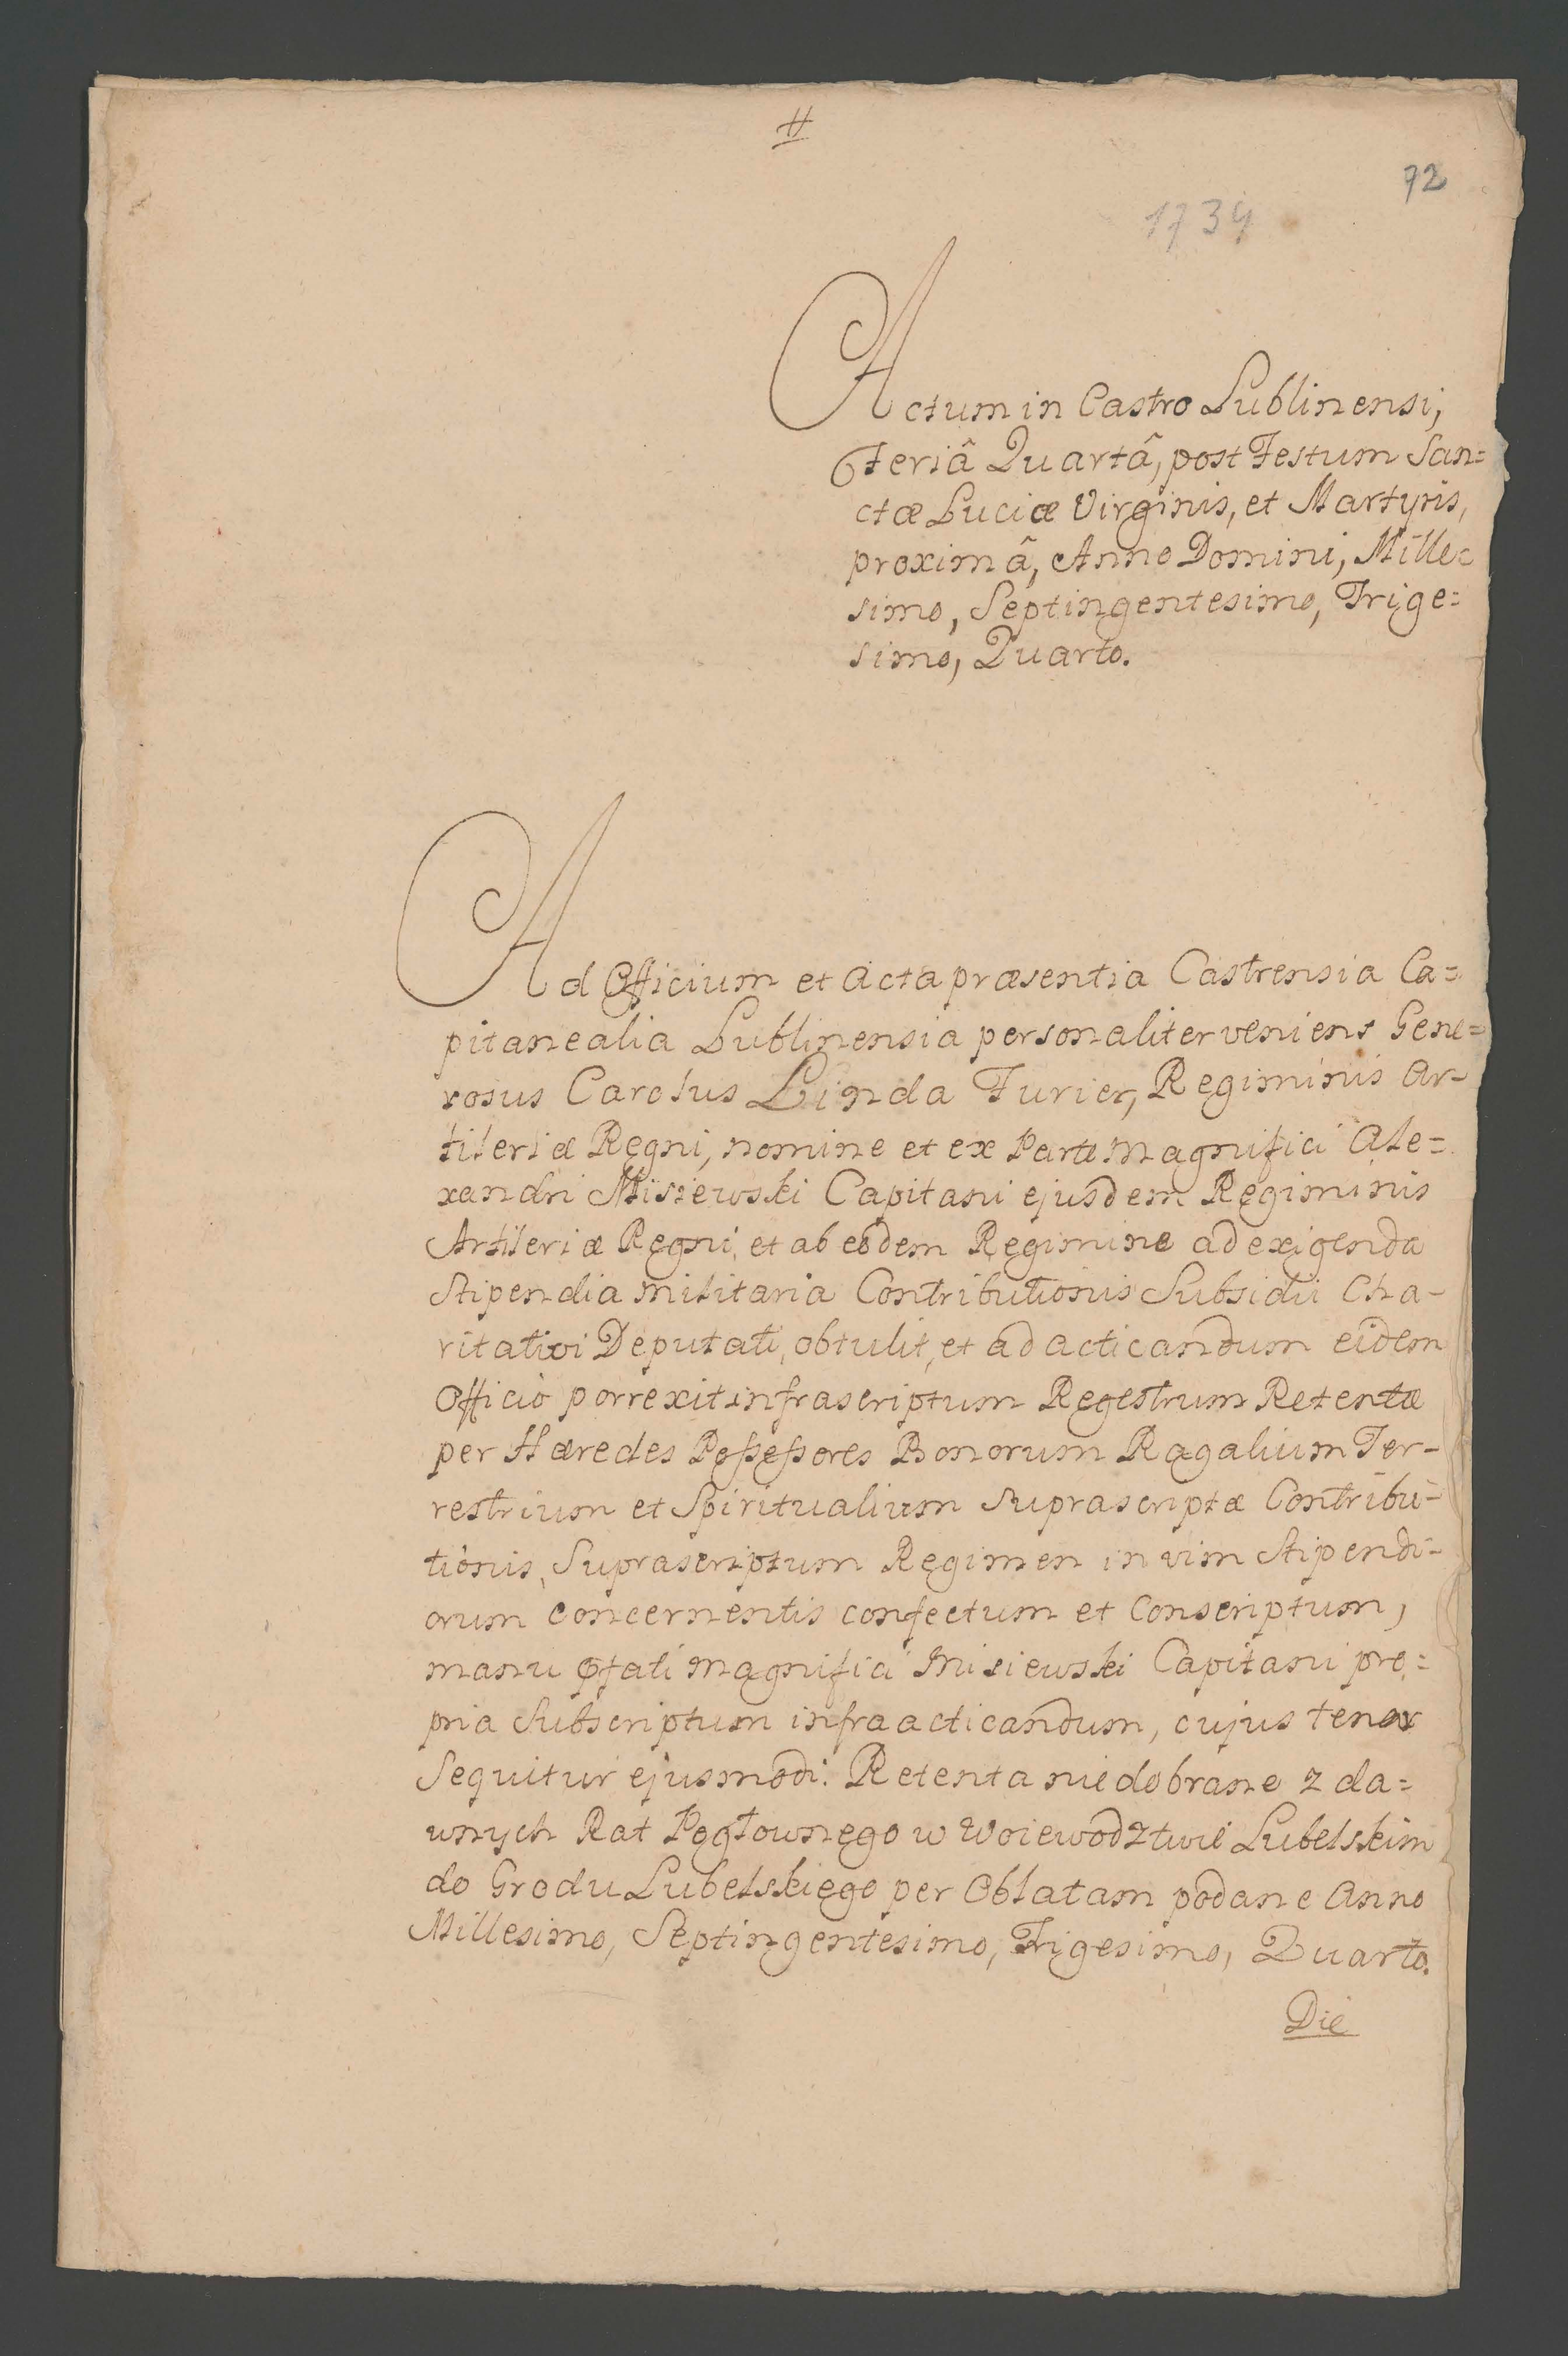 #
72
1734
Actum in Castro Lublinensi,
Feriâ Quartâ, post Festum San=
ctæ Luciæ Virginis, et Martyris,
proximâ, Anno Domini, Mille=
simo, Septingentesimo, Trige=
simo, Quarto.
Ad Officium et Acta præsentia Castrensia Ca=
pitanealia Lublinensia personaliter veniens Gene=
rosus Carolus Linda Furier, Regiminis Ar-
tileriæ Regni, nomine et ex Parte Magnifici Ale=
xandri Misiewski Capitani ejusdem Regiminis
Artileriæ Regni, et ab eodem Regimine ad exigenda
Stipendia militaria Contributionis Subsidii Cha-
ritativi Deputati, obtulit, et ad acticandum eidem
Officio porrexit infrascriptum Regestrum Retentæ
per Hæredes Possessores Bonorum Ragalium Ter-
restrium et Spiritualium suprascriptæ Contribu-
tionis, Suprascriptum Regimen in vim Stipendi-
orum concernentis confectum et Conscriptum,
manu pfati Magnifici Misiewski Capitani pro=
pria Subscriptum infra acticandum, cujus tenor
Sequitur ejusmodi: Retenta niedobrane z da=
wnych Rat Pogłownego w Woiewodztwie Lubelskim
do Grodu Lubelskiego per Oblatam podane Anno
Millesimo, Septingentesimo, Trigesimo, Quarto.
Die